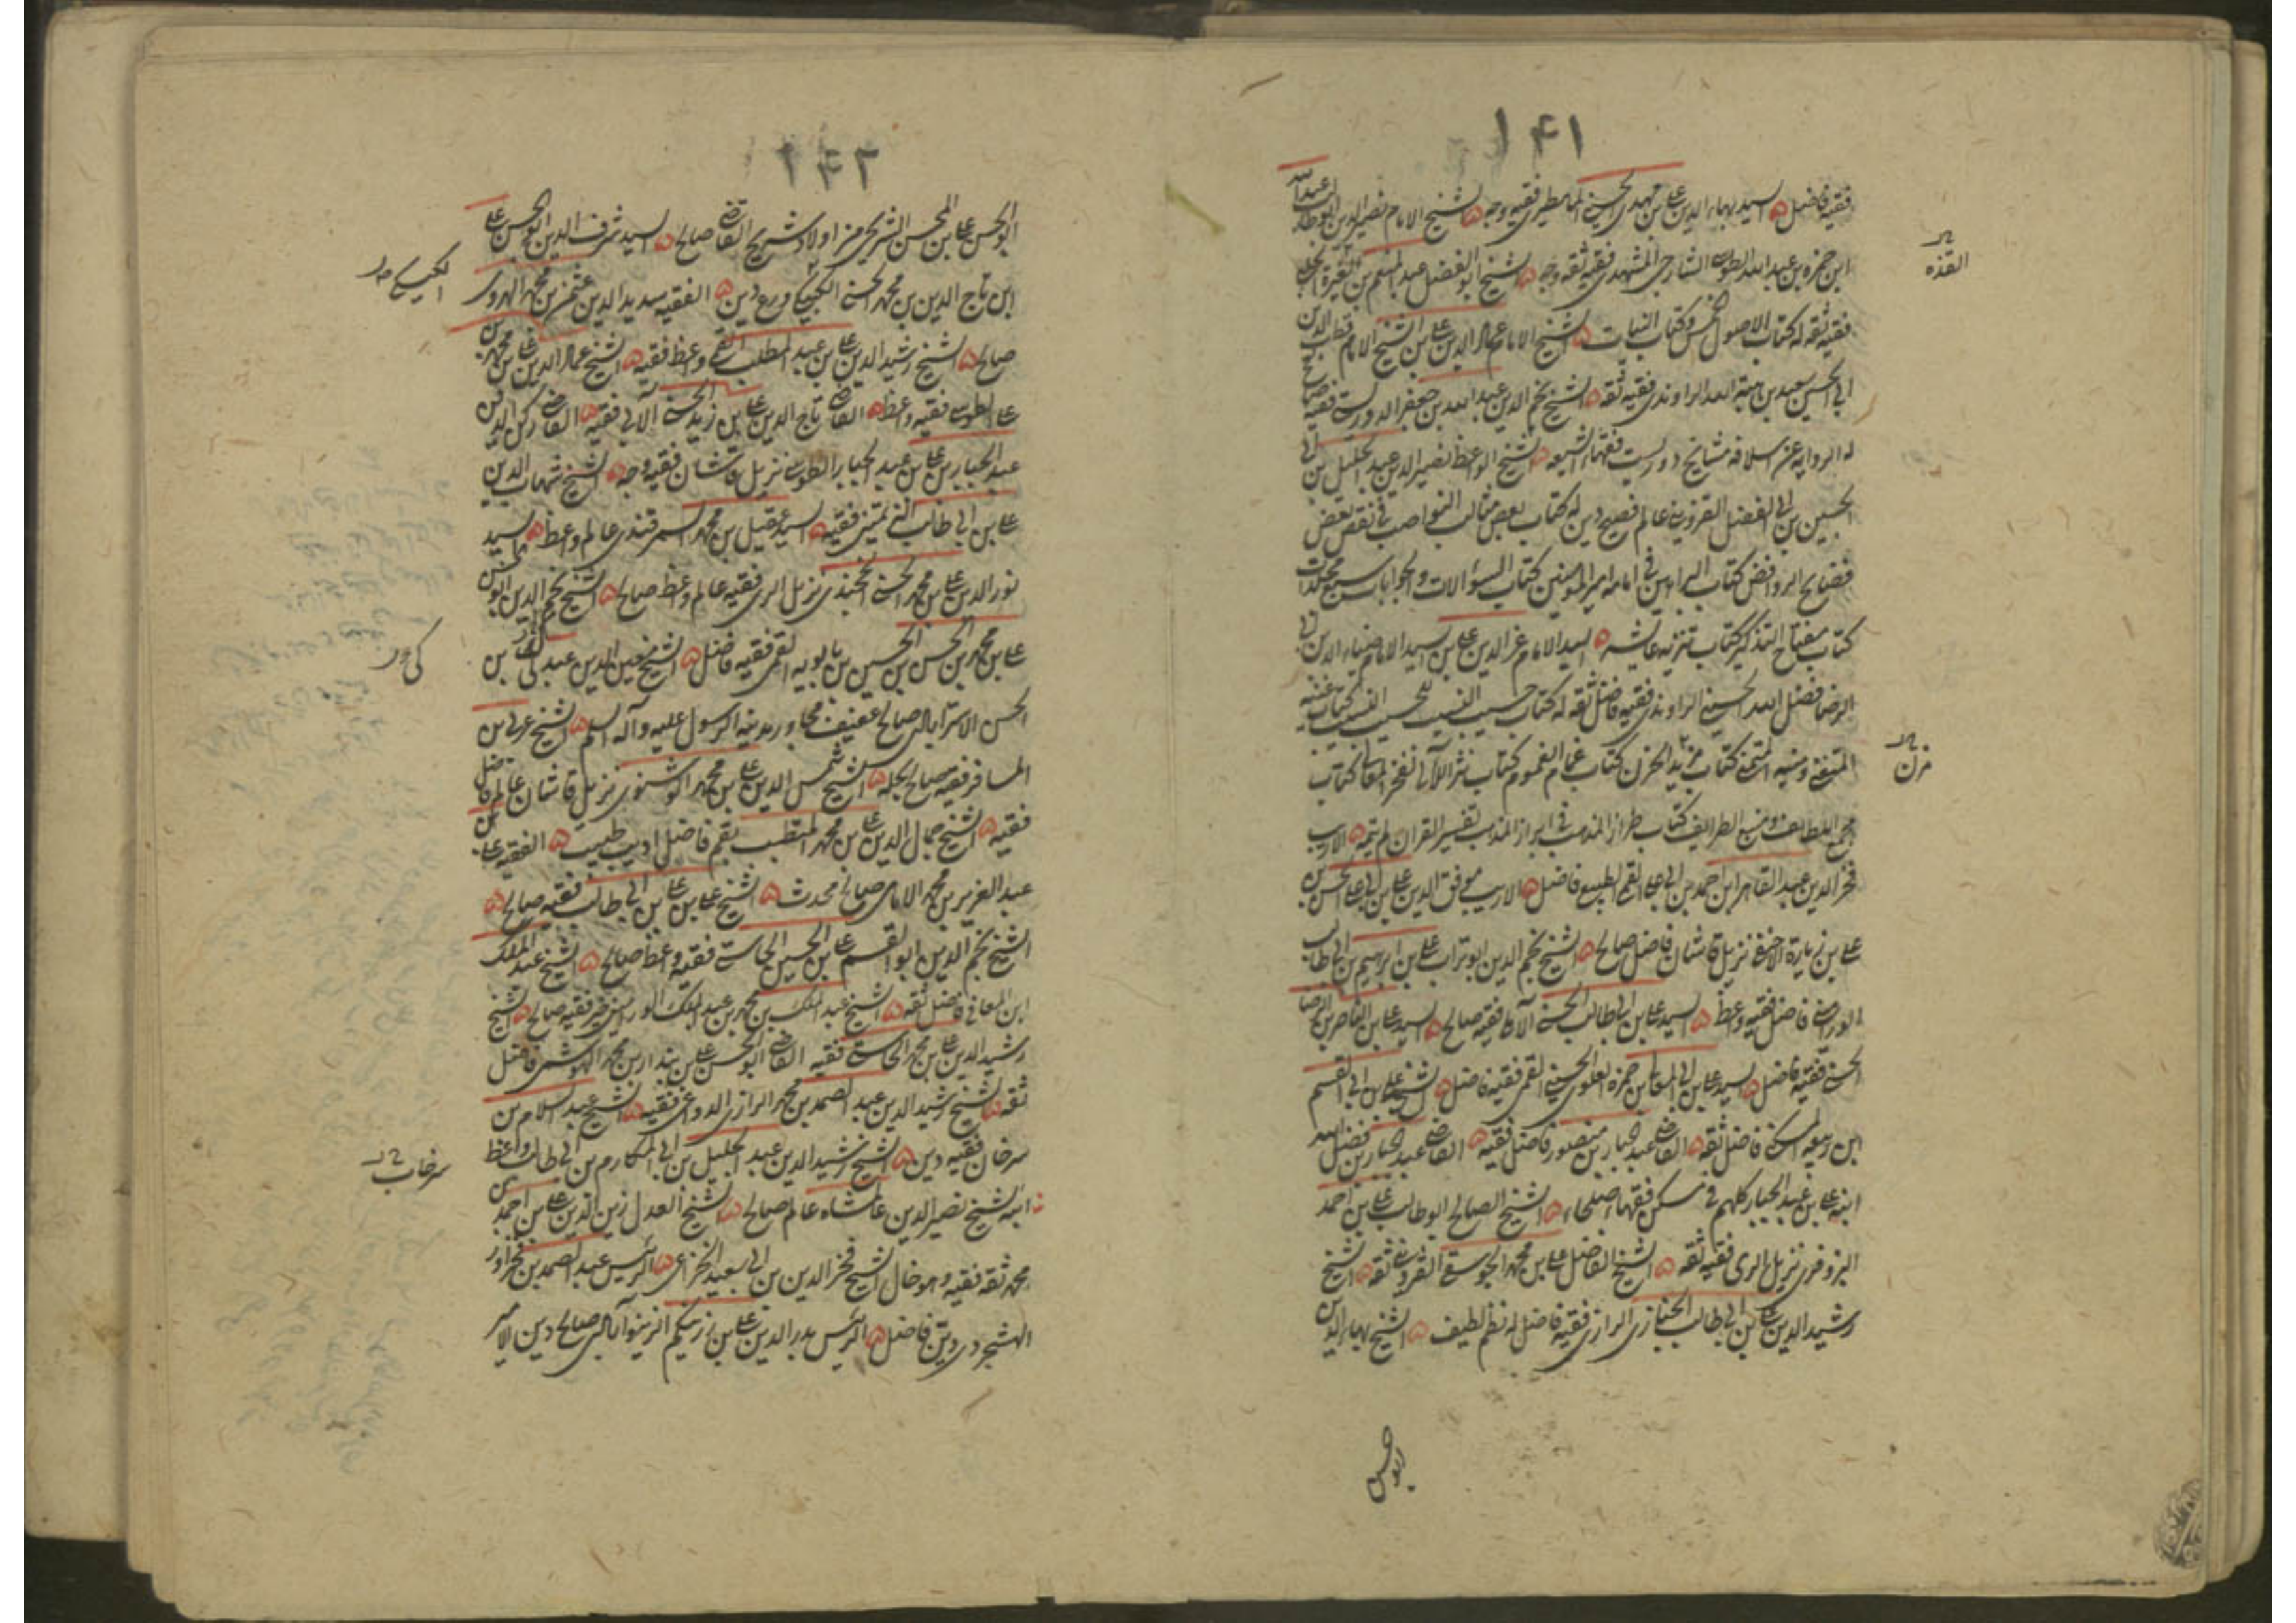 ١٤١
فقيه فاضل ۵ السيد بهاء الدين علي بن مهدي الحسيني المامطيري فقيه وجه ۵ الشيخ الامام نصير الدين ابو طالب عبد الله
ابن حمزه بن عبد الله الطوسي الشارحي المشهدي فقيه ثقه وجه ۵ الشيخ ابو الفضل عبد المنعم بن الغيرة الحلبي
فقيه ثقه له كتاب الاصول الخمس وكتاب النيات ۵ الشيخ الامام عماد الدين علي بن الشيخ الامام قطب الدين
ابي الحسين سعيد بن هبة الله الراوندي فقيه ثقه ۵ الشيخ نجم الدين عبد الله بن جعفر الدوريستي فقيه صالح
له الروايه عن اسلافه مشايخ دوريست فقهاء الشيعه ۵ الشيخ الواعظ نصير الدين عبد الجليل بن ابي
الحسين بن ابي الفضل القزويني عالم فصيح دين له كتاب بعض مثالب النواصب في نقض بعض
فضايح الروافض كتاب البراهين في امامه امير المؤمنين كتاب السؤالات والجوابات سبع مجلدات
كتاب مفتاح التذكير كتاب تنزيه عايشه ۵ السيد الامام عز الدين علي بن السيد الامام ضياء الدين ابي
الرضا فضل الله الحسيني الراوندي فقيه فاضل ثقه له كتاب حسيب النسيب للحسيب النسيب كتاب غنيه
المتغني ومنيه المتمني كتاب مزيد الحزن كتاب غمام الغموم كتاب نثر اللآلي لفخر المعالي كتاب
مجمع اللطايف ومنبع الظرايف كتاب طراز المذهب في ابراز المذهب تفسير القران لم يتمه ۵ الاديب
فخر الدين عبد القاهر بن احمد بن ابي علي القمي الطبيب فاضل ۵ الاديب موفق الدين علي بن ابي علي الحسن بن
علي بن زيارة الاخيفي نزيل قاشان فاضل صالح ۵ الشيخ نجم الدين ابو تراب علي بن ابرهيم بن ابي طالب
الوراميني فاضل فقيه واعظ ۵ السيد علي بن ابي طالب الحسني الآملي فقيه صالح ۵ السيد علي بن الناصر بن الرضا
الحسني فقيه فاضل ۵ السيد علي بن ابي المعالي بن حمزه العلوي الحسيني القمي فقيه فاضل ۵ الشيخ علي بن ابي القسم
ابن ربيعه المسكني فاضل ثقه ۵ القاضي عبد الجبار بن منصور فاضل فقيه ۵ القاضي عبد الجبار بن فضل الله
ابنه علي بن عبد الجبار كلهم في مسكن فقهاء صلحاء ۵ الشيخ الصالح ابو طالب علي بن احمد
البزوفري نزيل الري فقيه ثقه ۵ الشيخ الفاضل علي بن محمد الجوسقي القزويني ثقه ۵ الشيخ
رشيد الدين علي بن ابي طالب الخبازي الرازي فقيه فاضل له نظم لطيف ۵ الشيخ بهاء الدين
ابو الحسن
١٤٢
ابو الحسن علي بن المحسن الشريحي من اولاد شريح القاضي صالح ۵ السيد شرف الدين ابو الحسن علي
ابن تاج الدين بن محمد الحسني الكيسكي ورع دين ۵ الفقيه سديد الدين عثمن بن محمد الهروي
صالح ۵ الشيخ رشيد الدين علي بن عبد المطلب القمي واعظ فقيه ۵ الشيخ عماد الدين علي بن محمد بن
علي الطوسي فقيه واعظ ۵ القاضي تاج الدين علي بن زيد الحسني الآبي فقيه ۵ القاضي ركن الدين
عبد الجبار بن علي بن عبد الجبار الطوسي نزيل قاشان فقيه وجه ۵ الشيخ شهاب الدين
علي بن ابي طالب التميمي فقيه ۵ السيد عقيل بن محمد السمرقندي عالم واعظ ۵ السيد
نور الدين علي بن محمد الحسني الخجندي نزيل الري فقيه عالم واعظ صالح ۵ الشيخ نجم الدين ابو الحسن
علي بن محمد بن الحسن بن الحسين بن بابويه القمي فقيه فاضل ۵ الشيخ معين الدين عبد كي بن
الحسن الاسترابادي صالح عفيف مجاور مدينه الرسول عليه وآله السلم ۵ الشيخ عربي بن
المسافر فقيه صالح بحله ۵ الشيخ شمس الدين علي بن محمد الوشنوي نزيل قاشان عالم فاضل
فقيه ۵ الشيخ جمال الدين علي بن محمد المتطبب بقم فاضل اديب طبيب ۵ الفقيه علي بن
عبد العزيز بن محمد الامامي صالح محدث ۵ الشيخ علي بن علي بن ابي طالب فقيه صالح ۵
الشيخ نجم الدين ابو القسم علي بن الحسين الجاستي فقيه واعظ صالح ۵ الشيخ عبد الملك
ابن المعافي فاضل ثقه ۵ الشيخ عبد الملك بن محمد بن عبد الملك الوراميني فقيه صالح ۵ الشيخ
رشيد الدين علي بن محمد الجاستي فقيه القاضي ابو الحسن علي بن بندار بن محمد الهوشمي فاضل
ثقه ۵ الشيخ رشيد الدين عبد الصمد بن محمد الرازي الدوعي فقيه ۵ الشيخ عبد السلام بن
سرخان فقيه دين ۵ الشيخ رشيد الدين عبد الجليل بن ابي المكارم بن ابي طالب واعظ
۵ ابنه الشيخ نصير الدين عاشاه عالم صالح ۵ الشيخ العدل زين الدين علي بن احمد بن
محمد ثقه فقيه وهو خال الشيخ فخر الدين بن ابي سعيد الخزاعي ۵ الرئيس عبد الصمد بن فخراور
الهشجردي دين فاضل ۵ الرئيس بدر الدين علي بن زرينكم الزينوابادي صالح دين الامير
الكيسكي
كي
سرخاب